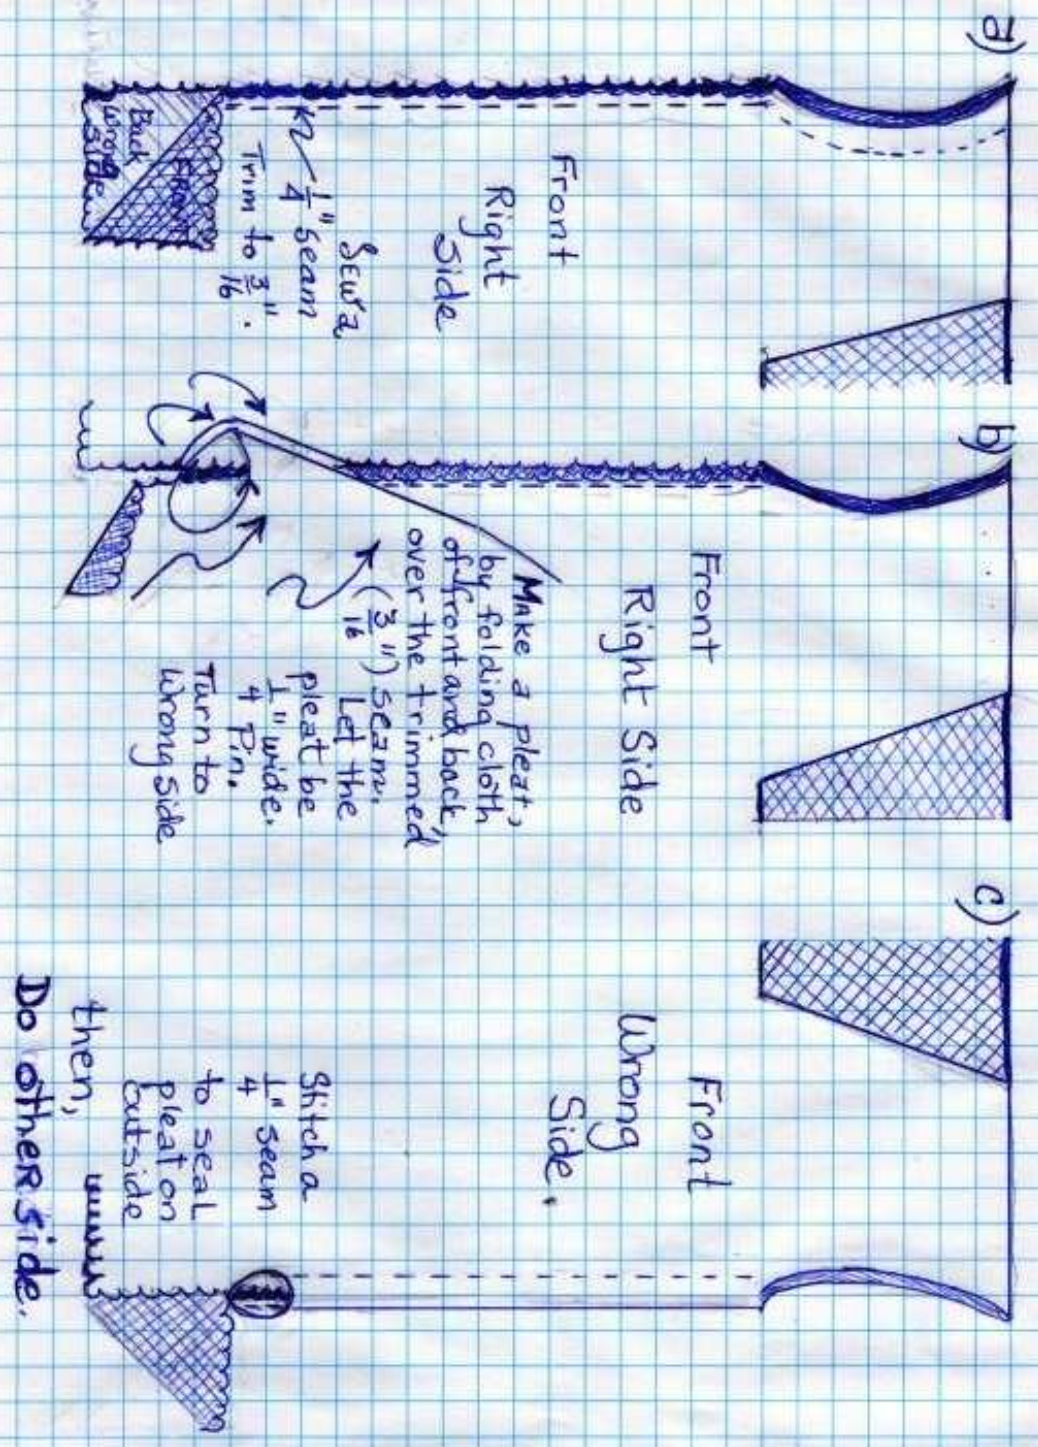 a)
Front
Right
Side
Sew a
1/4" seam
Trim to 3/16".
Front
Back
wrong
side
b)
Front
Right Side
Make a pleat,
by folding cloth
of front and back,
over the trimmed
(3/16") seam.
Let the
pleat be
1/4" wide.
Pin.
Turn to
wrong side
c)
Front
Wrong
Side.
Stitch a
1/4" seam
to seal
pleat on
outside
then,
Do other side.